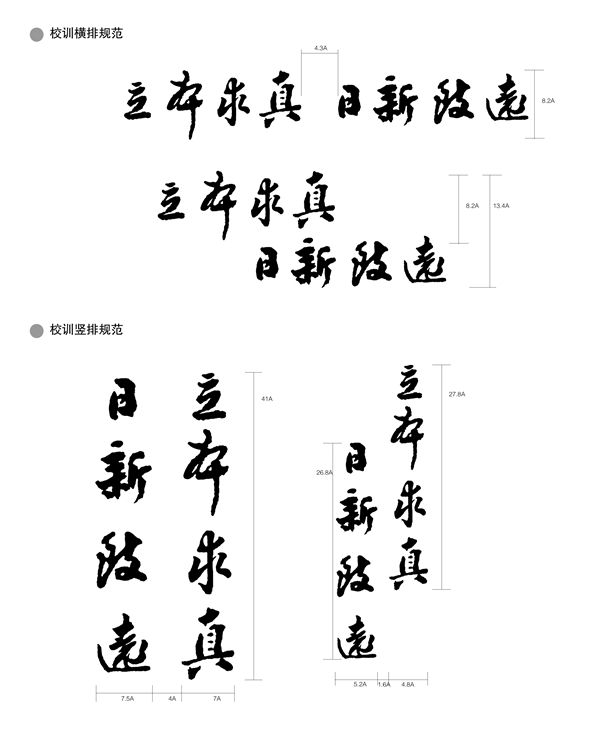 校训横排规范
4.3A
立本求真 日新致遠
8.2A
立本求真
日新致遠
8.2A
13.4A
校训竖排规范
立本求真
日新致遠
41A
7.5A
4A
7A
立本求真
日新致遠
27.8A
26.8A
5.2A
1.6A
4.8A